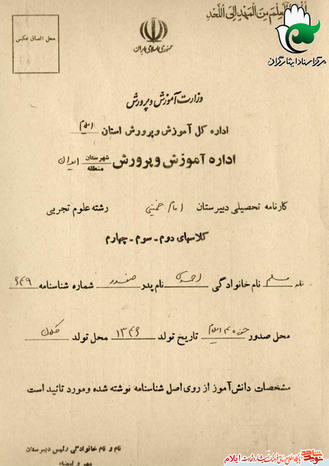 اطلبوا العلم من المهد الی اللحد
مرکز اسناد ایثارگران
محل الصاق عکس
جمهوری اسلامی ایران
وزارت آموزش و پرورش
اداره کل آموزش و پرورش استان ایلام
اداره آموزش و پرورش شهرستان منطقه
کارنامه تحصیلی دبیرستان امام خمینی رشته علوم تجربی
کلاسهای دوم - سوم - چهارم
نام مسلم نام خانوادگی احمدی نام پدر صفدر شماره شناسنامه ۶۴۹
محل صدور حوزه ۳ ایلام تاریخ تولد ۱۳۴۶ محل تولد
مشخصات دانش‌آموز از روی اصل شناسنامه نوشته شده و مورد تائید است
نام و نام خانوادگی رئیس دبیرستان
مهر و امضاء